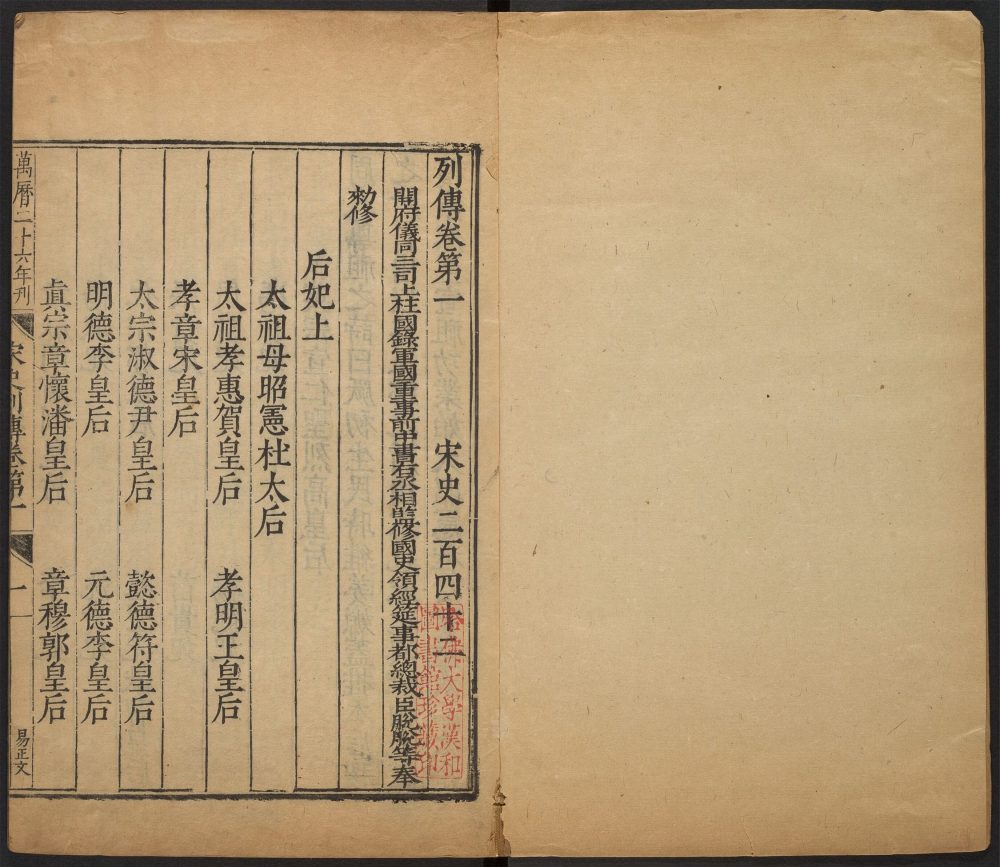 列傳卷第一 宋史二百四十二
開府儀同三司上柱國錄軍國重事前中書右丞相監修國史領經筵事都總裁臣脫脫等奉
勑修
后妃上
太祖母昭憲杜太后
太祖孝惠賀皇后 孝明王皇后
孝章宋皇后
太宗淑德尹皇后 懿德符皇后
明德李皇后 元德李皇后
眞宗章懷潘皇后 章穆郭皇后
萬曆二十六年刊
宋史列傳卷第一
一
易正文
哈佛大學漢和
圖書館珍藏印